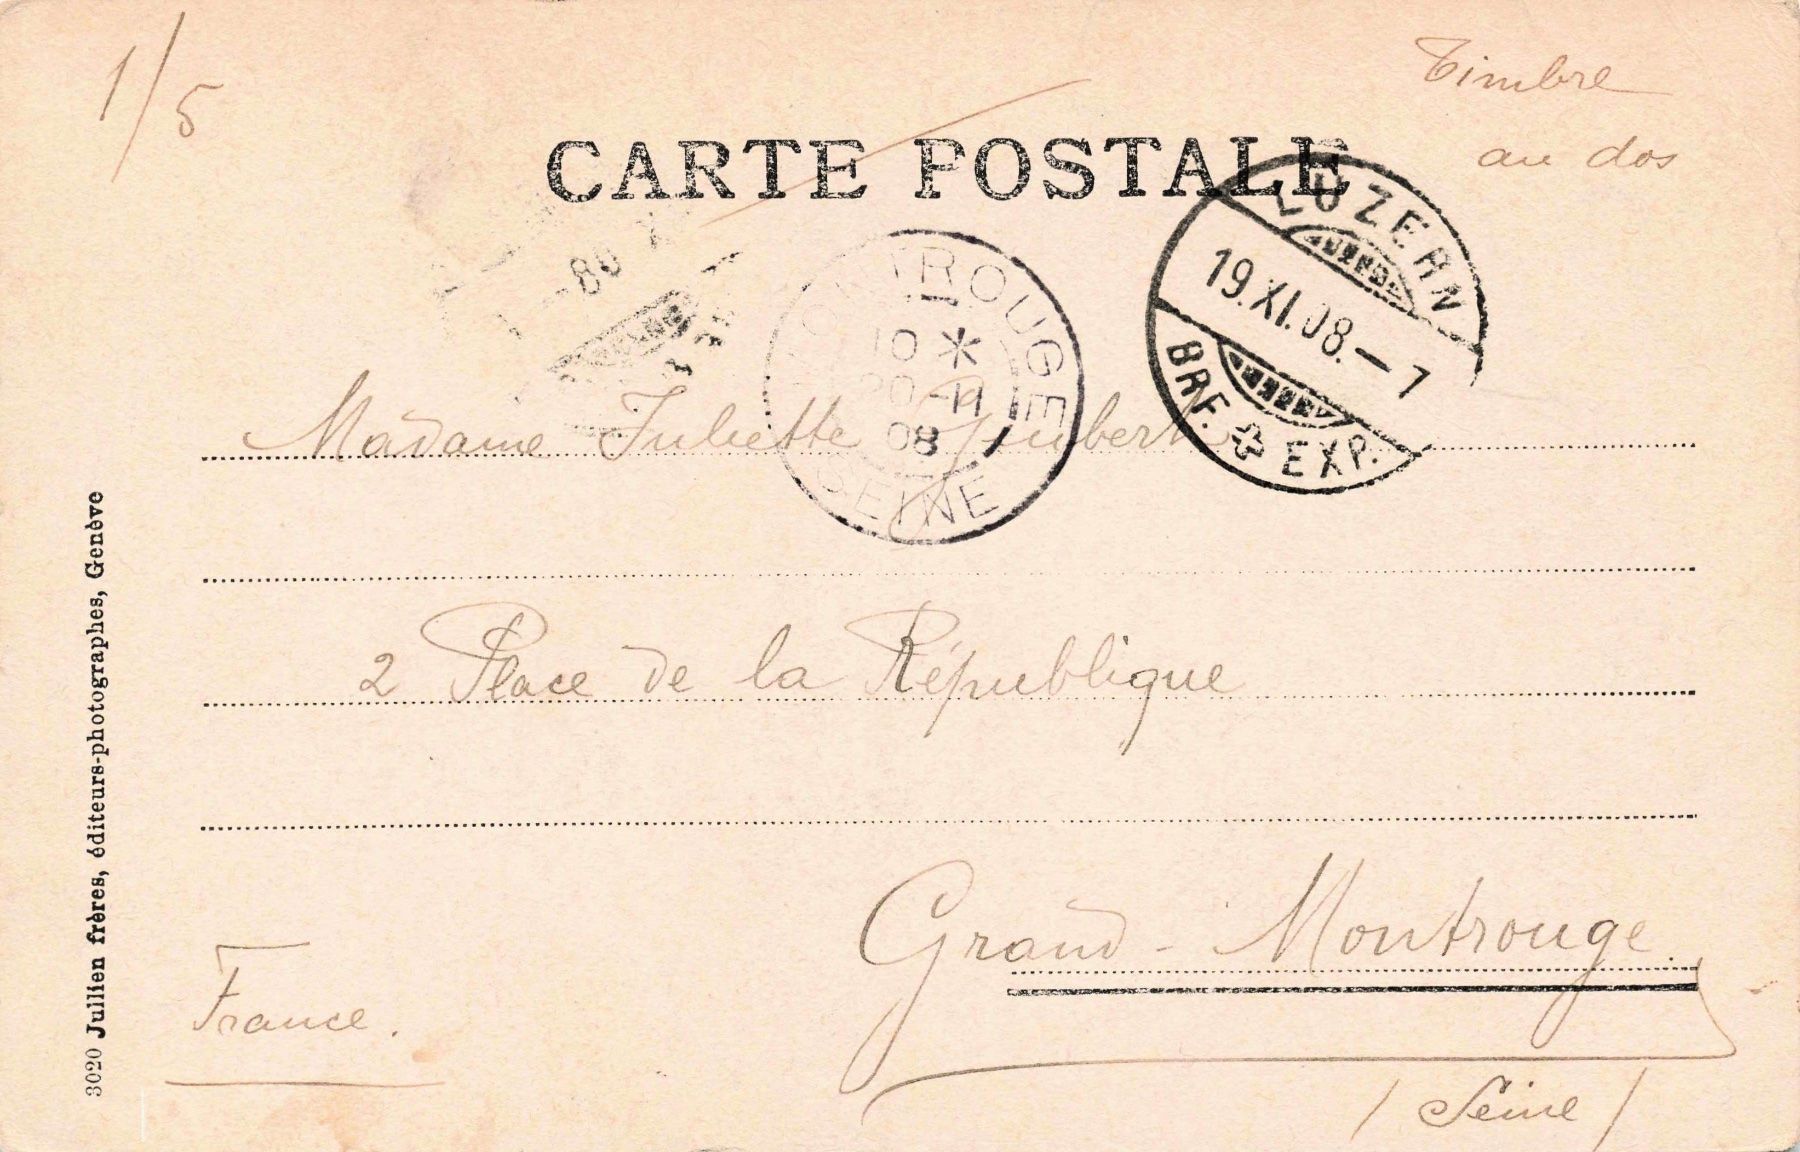 1/5
Timbre
au dos
CARTE POSTALE
LUZERN
19.XI.08.–7
BRF. EXP.
MONTROUGE
10 *
20-11
08
SEINE
Madame Juliette
2 Place de la République
Grand-Montrouge.
/ Seine /
France.
3020 Jullien frères, éditeurs-photographes, Genève